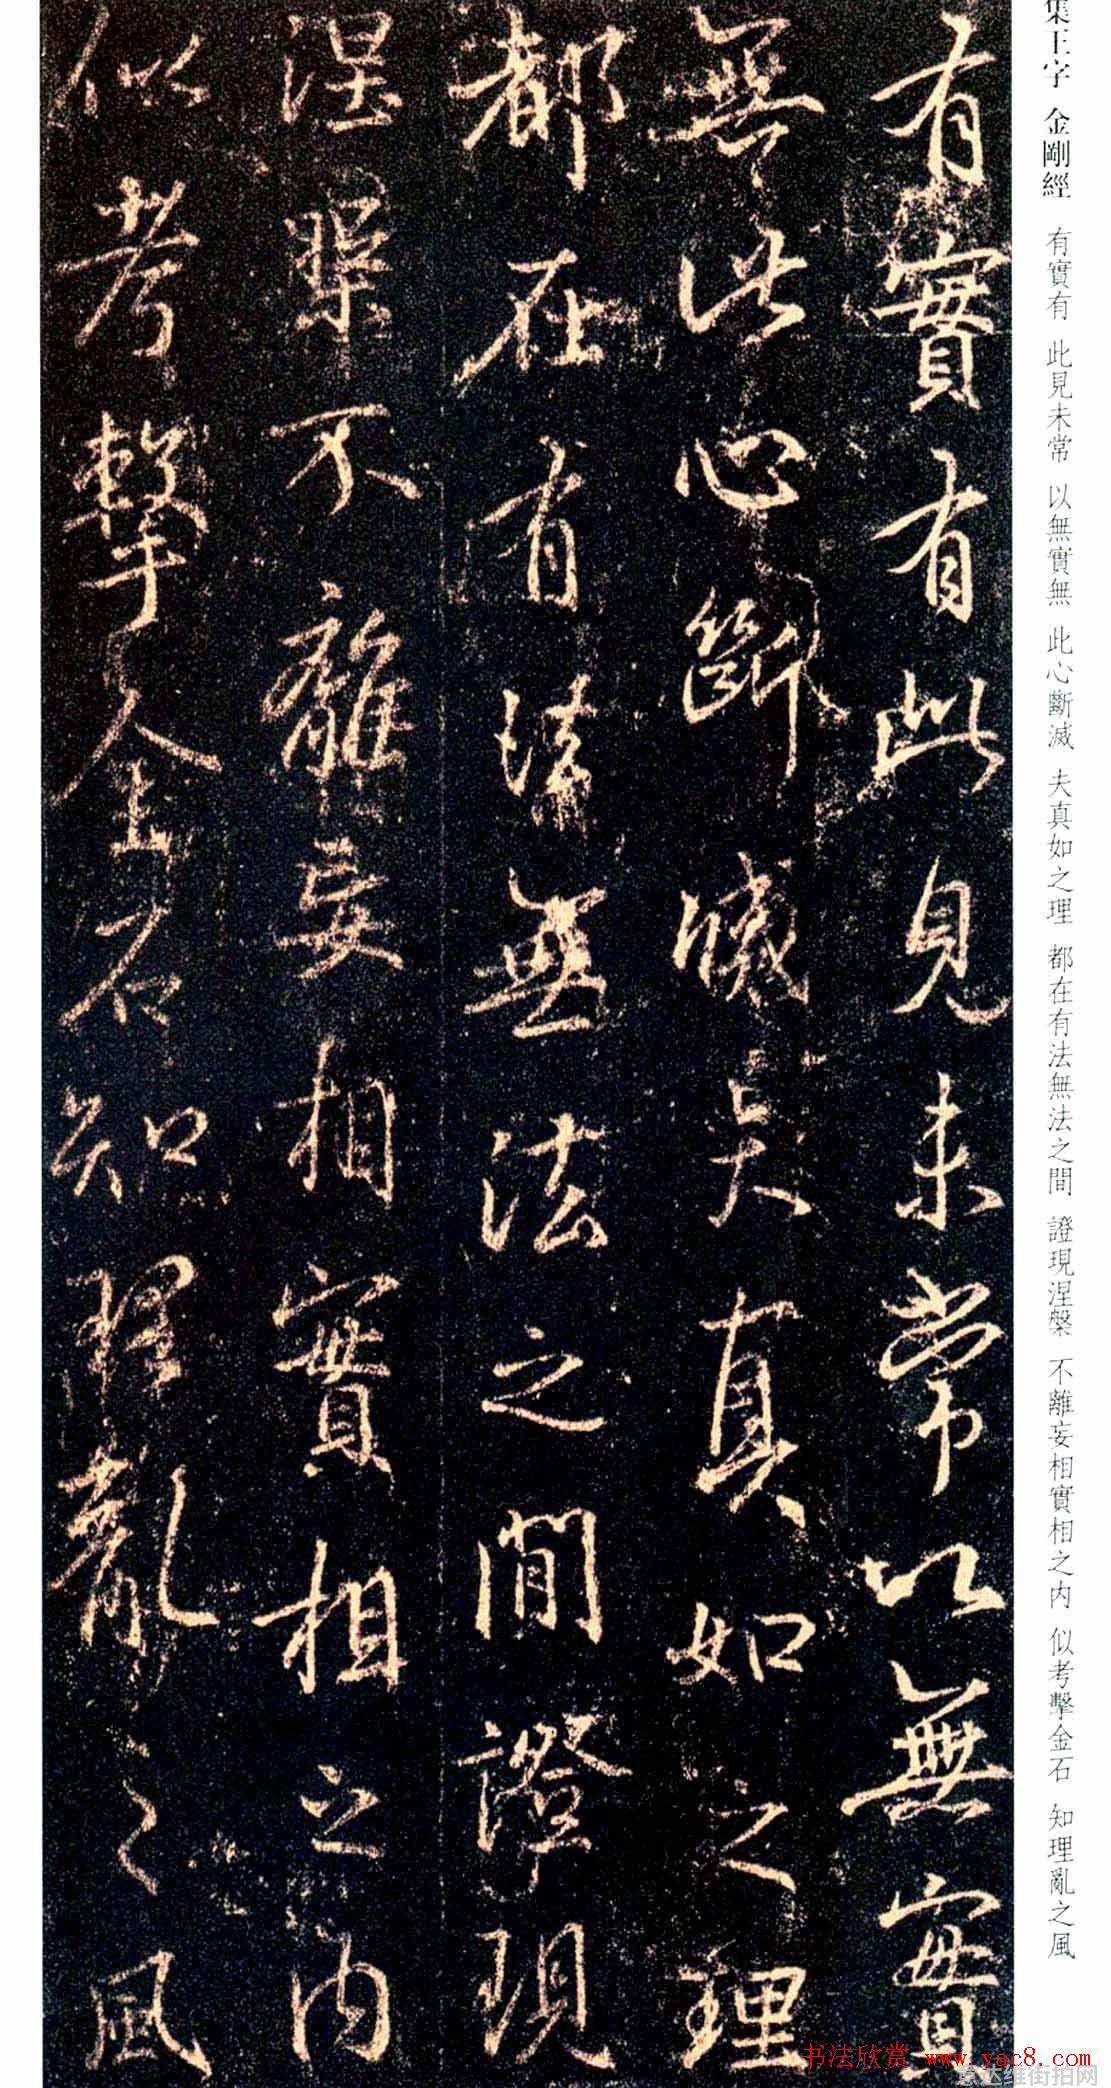 集王字 金剛經 有實有 此見未常 以無實無 此心斷滅 夫真如之理 都在有法無法之間 證現涅槃 不離妄相實相之内 似考擊金石 知理亂之風
有實有此見未常以無實
無此心斷滅夫真如之理
都在有法無法之間證現
涅槃不離妄相實相之内
似考擊金石知理亂之風
书法欣赏 www.yac8.com
达维街拍网